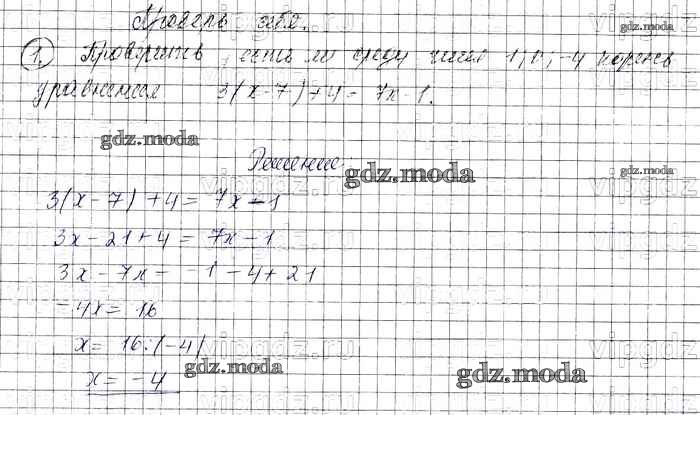 Проверь себя.
1. Проверить, есть ли среди чисел -1; 0; -4 корень
уравнения 3(x-7)+4= 7x-1.
Решение.
3(x-7)+4= 7x-1
3x-21+4= 7x-1
3x-7x= -1-4+21
-4x= 16
x= 16:(-4)
x= -4
gdz.moda
gdz.moda
gdz.moda
gdz.moda
gdz.moda
gdz.moda
vipgdz.ru
vipgdz.ru
vipgdz.ru
vipgdz.ru